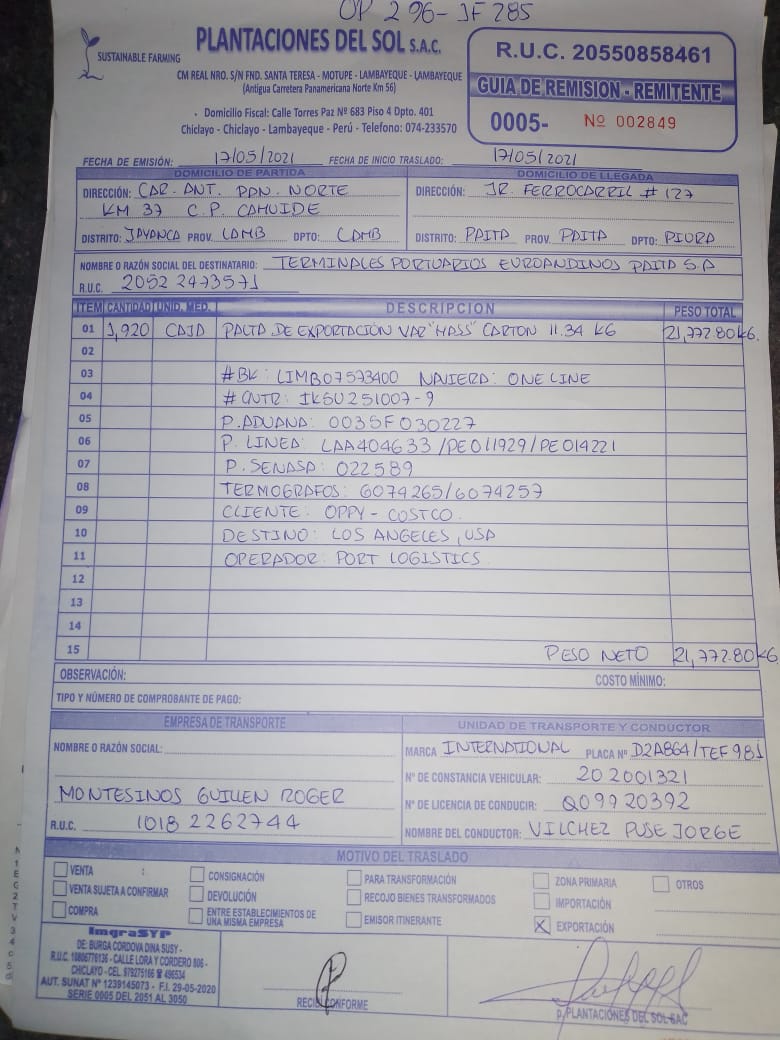 OP 296-JF 285
SUSTAINABLE FARMING
PLANTACIONES DEL SOL S.A.C.
CM REAL NRO. S/N FND. SANTA TERESA - MOTUPE - LAMBAYEQUE - LAMBAYEQUE
(Antigua Carretera Panamericana Norte Km 56)
Domicilio Fiscal: Calle Torres Paz Nº 683 Piso 4 Dpto. 401
Chiclayo - Chiclayo - Lambayeque - Perú - Telefono: 074-233570
R.U.C. 20550858461
GUIA DE REMISION - REMITENTE
0005- Nº 002849
FECHA DE EMISIÓN: 17/05/2021 FECHA DE INICIO TRASLADO: 17/05/2021
DOMICILIO DE PARTIDA DOMICILIO DE LLEGADA
DIRECCIÓN: CAR. ANT. PAN. NORTE DIRECCIÓN: JR. FERROCARRIL # 127
KM 37 C.P. CAHUIDE
DISTRITO: JAYANCA PROV. LAMB DPTO: LAMB DISTRITO: PAITA PROV. PAITA DPTO: PIURA
NOMBRE O RAZÓN SOCIAL DEL DESTINATARIO: TERMINALES PORTUARIOS EUROANDINOS PAITA S.A
R.U.C. 20522473571
ITEM CANTIDAD UNID. MED. DESCRIPCION PESO TOTAL
01 1,920 CAJA PALTA DE EXPORTACIÓN VAR "HASS" CARTON 11.34 KG 21,772.80 KG.
02
03 #BK: LIMB07573400 NAVIERA: ONE LINE
04 # CNTR: IKSU 251007-9
05 P. ADUANA: 0035F030227
06 P. LINEA: LAA404633/PE011929/PE014221
07 P. SENASA: 022589
08 TERMOGRAFOS: 6074265/6074257
09 CLIENTE: OPPY - COSTCO
10 DESTINO: LOS ANGELES, USA
11 OPERADOR: PORT LOGISTICS
12
13
14
15 PESO NETO 21,772.80 KG
OBSERVACIÓN: COSTO MÍNIMO:
TIPO Y NÚMERO DE COMPROBANTE DE PAGO:
EMPRESA DE TRANSPORTE UNIDAD DE TRANSPORTE Y CONDUCTOR
NOMBRE O RAZÓN SOCIAL: MARCA INTERNATIONAL PLACA Nº D2A864/TEF981
Nº DE CONSTANCIA VEHICULAR: 202001321
MONTESINOS GUILLEN ROGER Nº DE LICENCIA DE CONDUCIR: Q09920392
R.U.C. 10182262744 NOMBRE DEL CONDUCTOR: VILCHEZ PUSE JORGE
MOTIVO DEL TRASLADO
VENTA CONSIGNACIÓN PARA TRANSFORMACIÓN ZONA PRIMARIA OTROS
VENTA SUJETA A CONFIRMAR DEVOLUCIÓN RECOJO BIENES TRANSFORMADOS IMPORTACIÓN
COMPRA ENTRE ESTABLECIMIENTOS DE UNA MISMA EMPRESA EMISOR ITINERANTE X EXPORTACIÓN
ImgraSYP
DE: BURGA CORDOVA DINA SUSY -
R.U.C. 10806776136 - CALLE LORA Y CORDERO 806 -
CHICLAYO - CEL. 979275166 ☎ 496534
AUT. SUNAT Nº 1239145073 - F.I. 29-05-2020
SERIE 0005 DEL 2051 AL 3050
RECIBI CONFORME
p. PLANTACIONES DEL SOL SAC